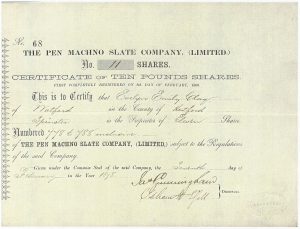 No. 68
THE PEN MACHNO SLATE COMPANY, (LIMITED.)
No. 11 SHARES.
CERTIFICATE OF TEN POUNDS SHARES.
This is to Certify that Evelyn Emily
of Watford in the County of Hertford
Spinster is the Proprietor of Eleven Shares
Numbered 778 to 788 inclusive
OF THE PEN MACHNO SLATE COMPANY, (LIMITED,) subject to the Regulations
of the said Company.
Given under the Common Seal of the said Company, the day of
in the Year 1878
Jas Cunningham
Directors.